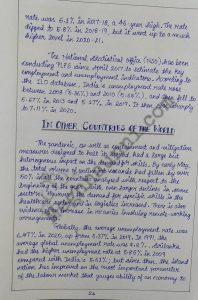 rate was 6.1% in 2017-18, a 45-year high. The rate
dipped to 5.8% in 2018-19, but it went up to a much
higher level in 2020-21.
The National Statistical Office (NSO) has been
conducting PLFS since April 2017 to estimate the key
employment and unemployment indicators. According to
the ILO database, India's unemployment rate rose
between 2008 and 2010 and fell to
5.67% in 2013 and in 2019. It then rose sharply
to 7.11% in 2020.
IN OTHER COUNTRIES OF THE WORLD
The pandemic, as well as containment and mitigation
measures designed to beat it, have had a large but
heterogeneous impact on the demand for skills. By early May,
the total volume of online vacancies had fallen by over
50% in all the countries with respect to the
beginning of the with larger declines in some
countries. the demand for specific skills in the
healthcare and in logistics increased. There is also
evidence of an increase in vacancies involving remote-working
arrangements.
Globally, the average unemployment rate was
6.47% in 2020, up from 5.37% in 2019. In 1991, the
average global unemployment rate was 4.8%. Sri Lanka
had the higher unemployment rate at in 2009
compared with India's but since then, the island
nation has improved on the most important parameter
of the labour market that gauges ability of an economy to